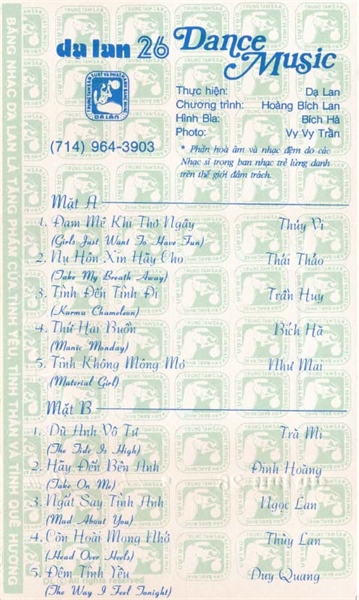 dạ lan 26 Dance Music
DẠ LAN
(714) 964-3903
Thực hiện: Dạ Lan
Chương trình: Hoàng Bích Lan
Hình Bìa: Bích Hà
Photo: Vy Vy Trần
* Phần hoà âm và nhạc đệm do các
Nhạc sĩ trong ban nhạc trẻ lừng danh
trên thế giới đảm trách.
Mặt A
1. Đam Mê Khi Thơ Ngây Thúy Vi
(Girls Just Want To Have Fun)
2. Nụ Hôn Xin Hãy Cho Thái Thảo
(Take My Breath Away)
3. Tình Đến Tình Đi Trần Huy
(Karma Chameleon)
4. Thứ Hai Buồn Bích Hà
(Manic Monday)
5. Tình Không Mộng Mơ Như Mai
(Material Girl)
Mặt B
1. Dù Anh Vô Tư Trà Mi
(The Tide Is High)
2. Hãy Đến Bên Anh Đình Hoàng
(Take On Me)
3. Ngất Say Tình Anh Ngọc Lan
(Mad About You)
4. Còn Hoài Mong Nhớ Thùy Lan
(Head Over Heels)
5. Đêm Tình Yêu Duy Quang
(The Way I Feel Tonight)
BĂNG NHẠC DẠ LAN LÀ TẶNG PHẨM CỦA TÌNH YÊU, TÌNH THÂN TÌNH QUÊ HƯƠNG